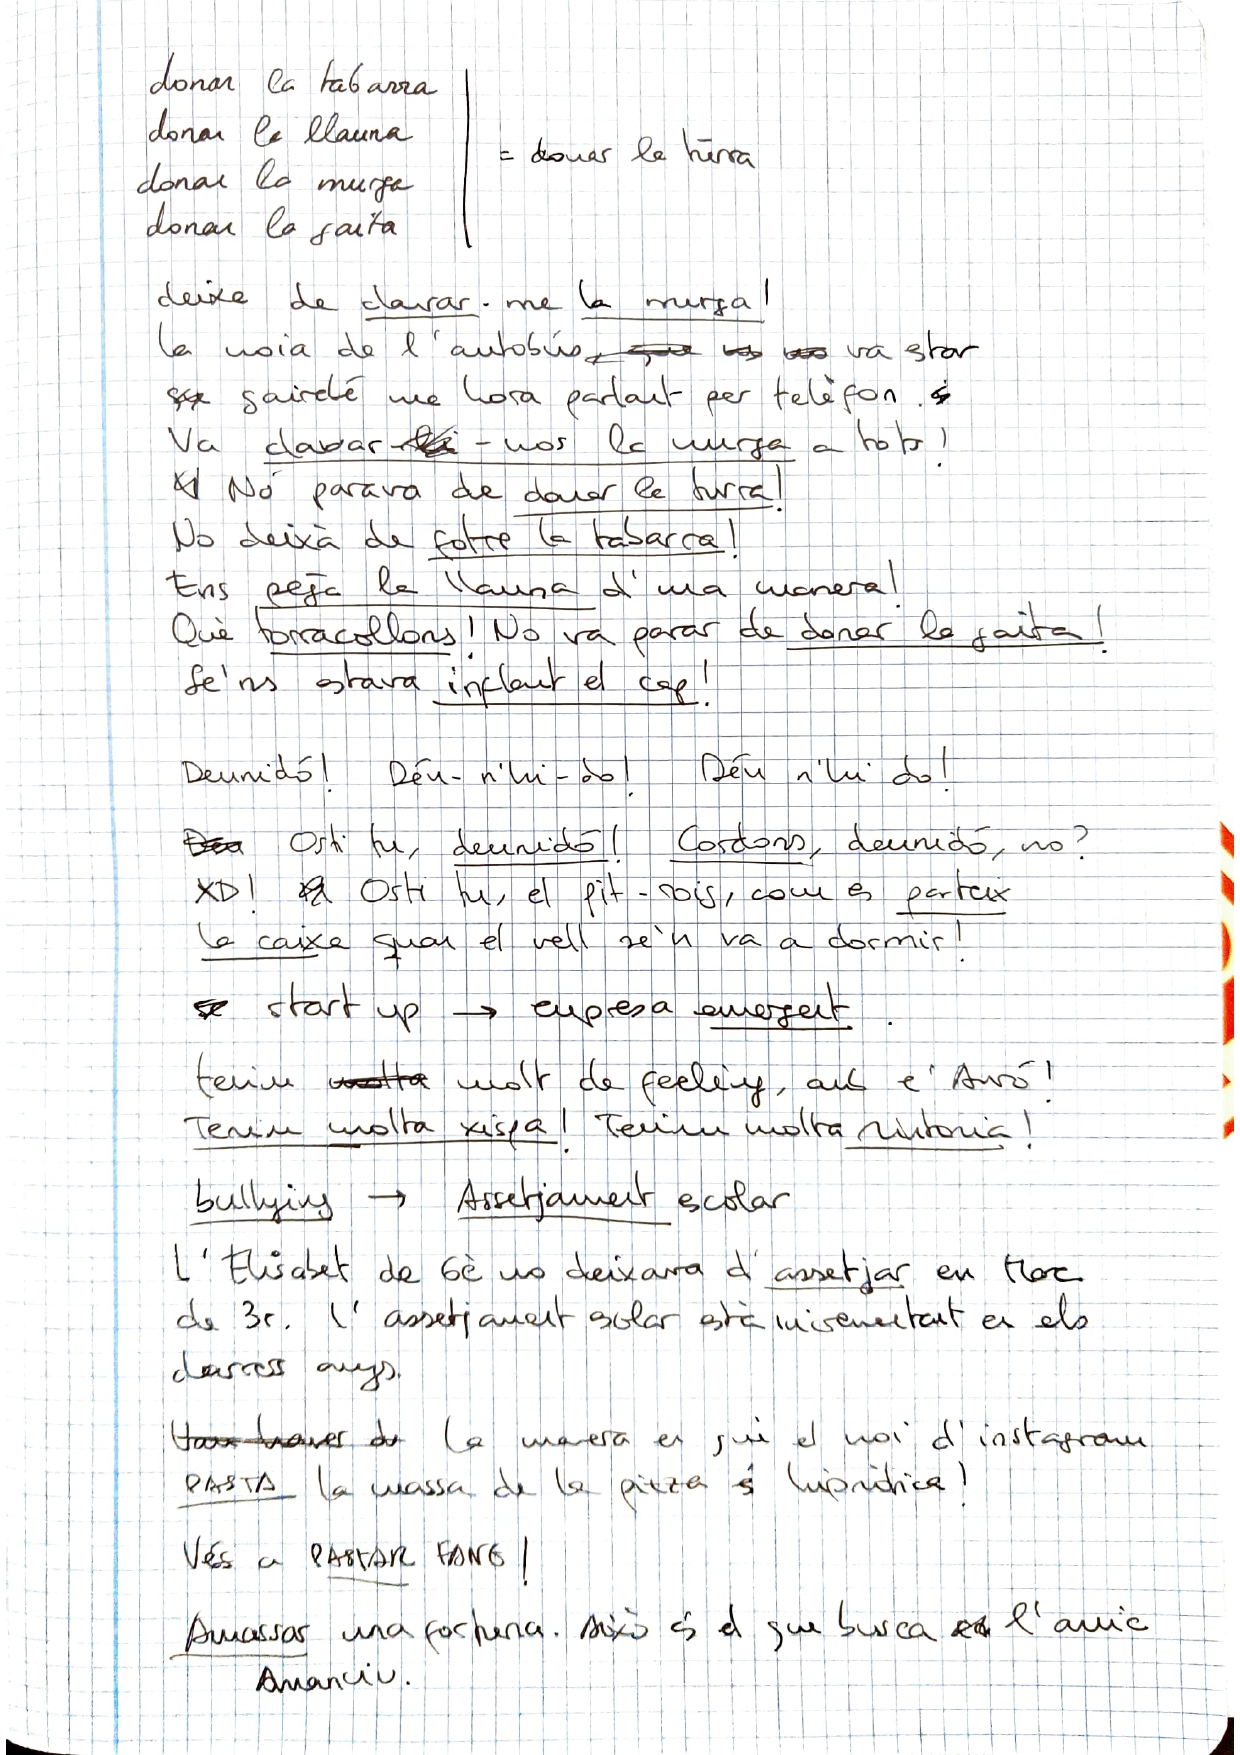 donar la tabarra
donar la llauna
donar la murga
donar la gaita
= donar la turra
deixa de clavar-me la murga!
la noia de l'autobús, va star
gairebé una hora parlant per telèfon.
Va clavar-nos la murga a tots!
No parava de donar la turra!
No deixà de fotre la tabarra!
Ens pegà la llauna d'una manera!
Què torracollons! No va parar de donar la gaita!
Se'ns estava inflant el cap!
Deunidó! Déu-n'hi-do! Déu n'hi do!
Osti tu, deunidó! Cordons, deunidó, no?
XD! Osti tu, el pit-rois, com es parteix
la caixa quan el vell se'n va a dormir!
start up → empresa emergent.
tenim molt de feeling, amb l'Avó!
Tenim molta xispa! Tenim molta sintonia!
bullying → Assetjament escolar
L'Elisabet de 6è no deixava d'assetjar en Marc
de 3r. L'assetjament escolar està incrementant en els
darrers anys.
La manera en què el noi d'instagram
PASTA la massa de la pizza és hipnòtica!
Vés a PASTAR FANG!
Amassar una fortuna. Això és el que busca l'amic
Amanciu.